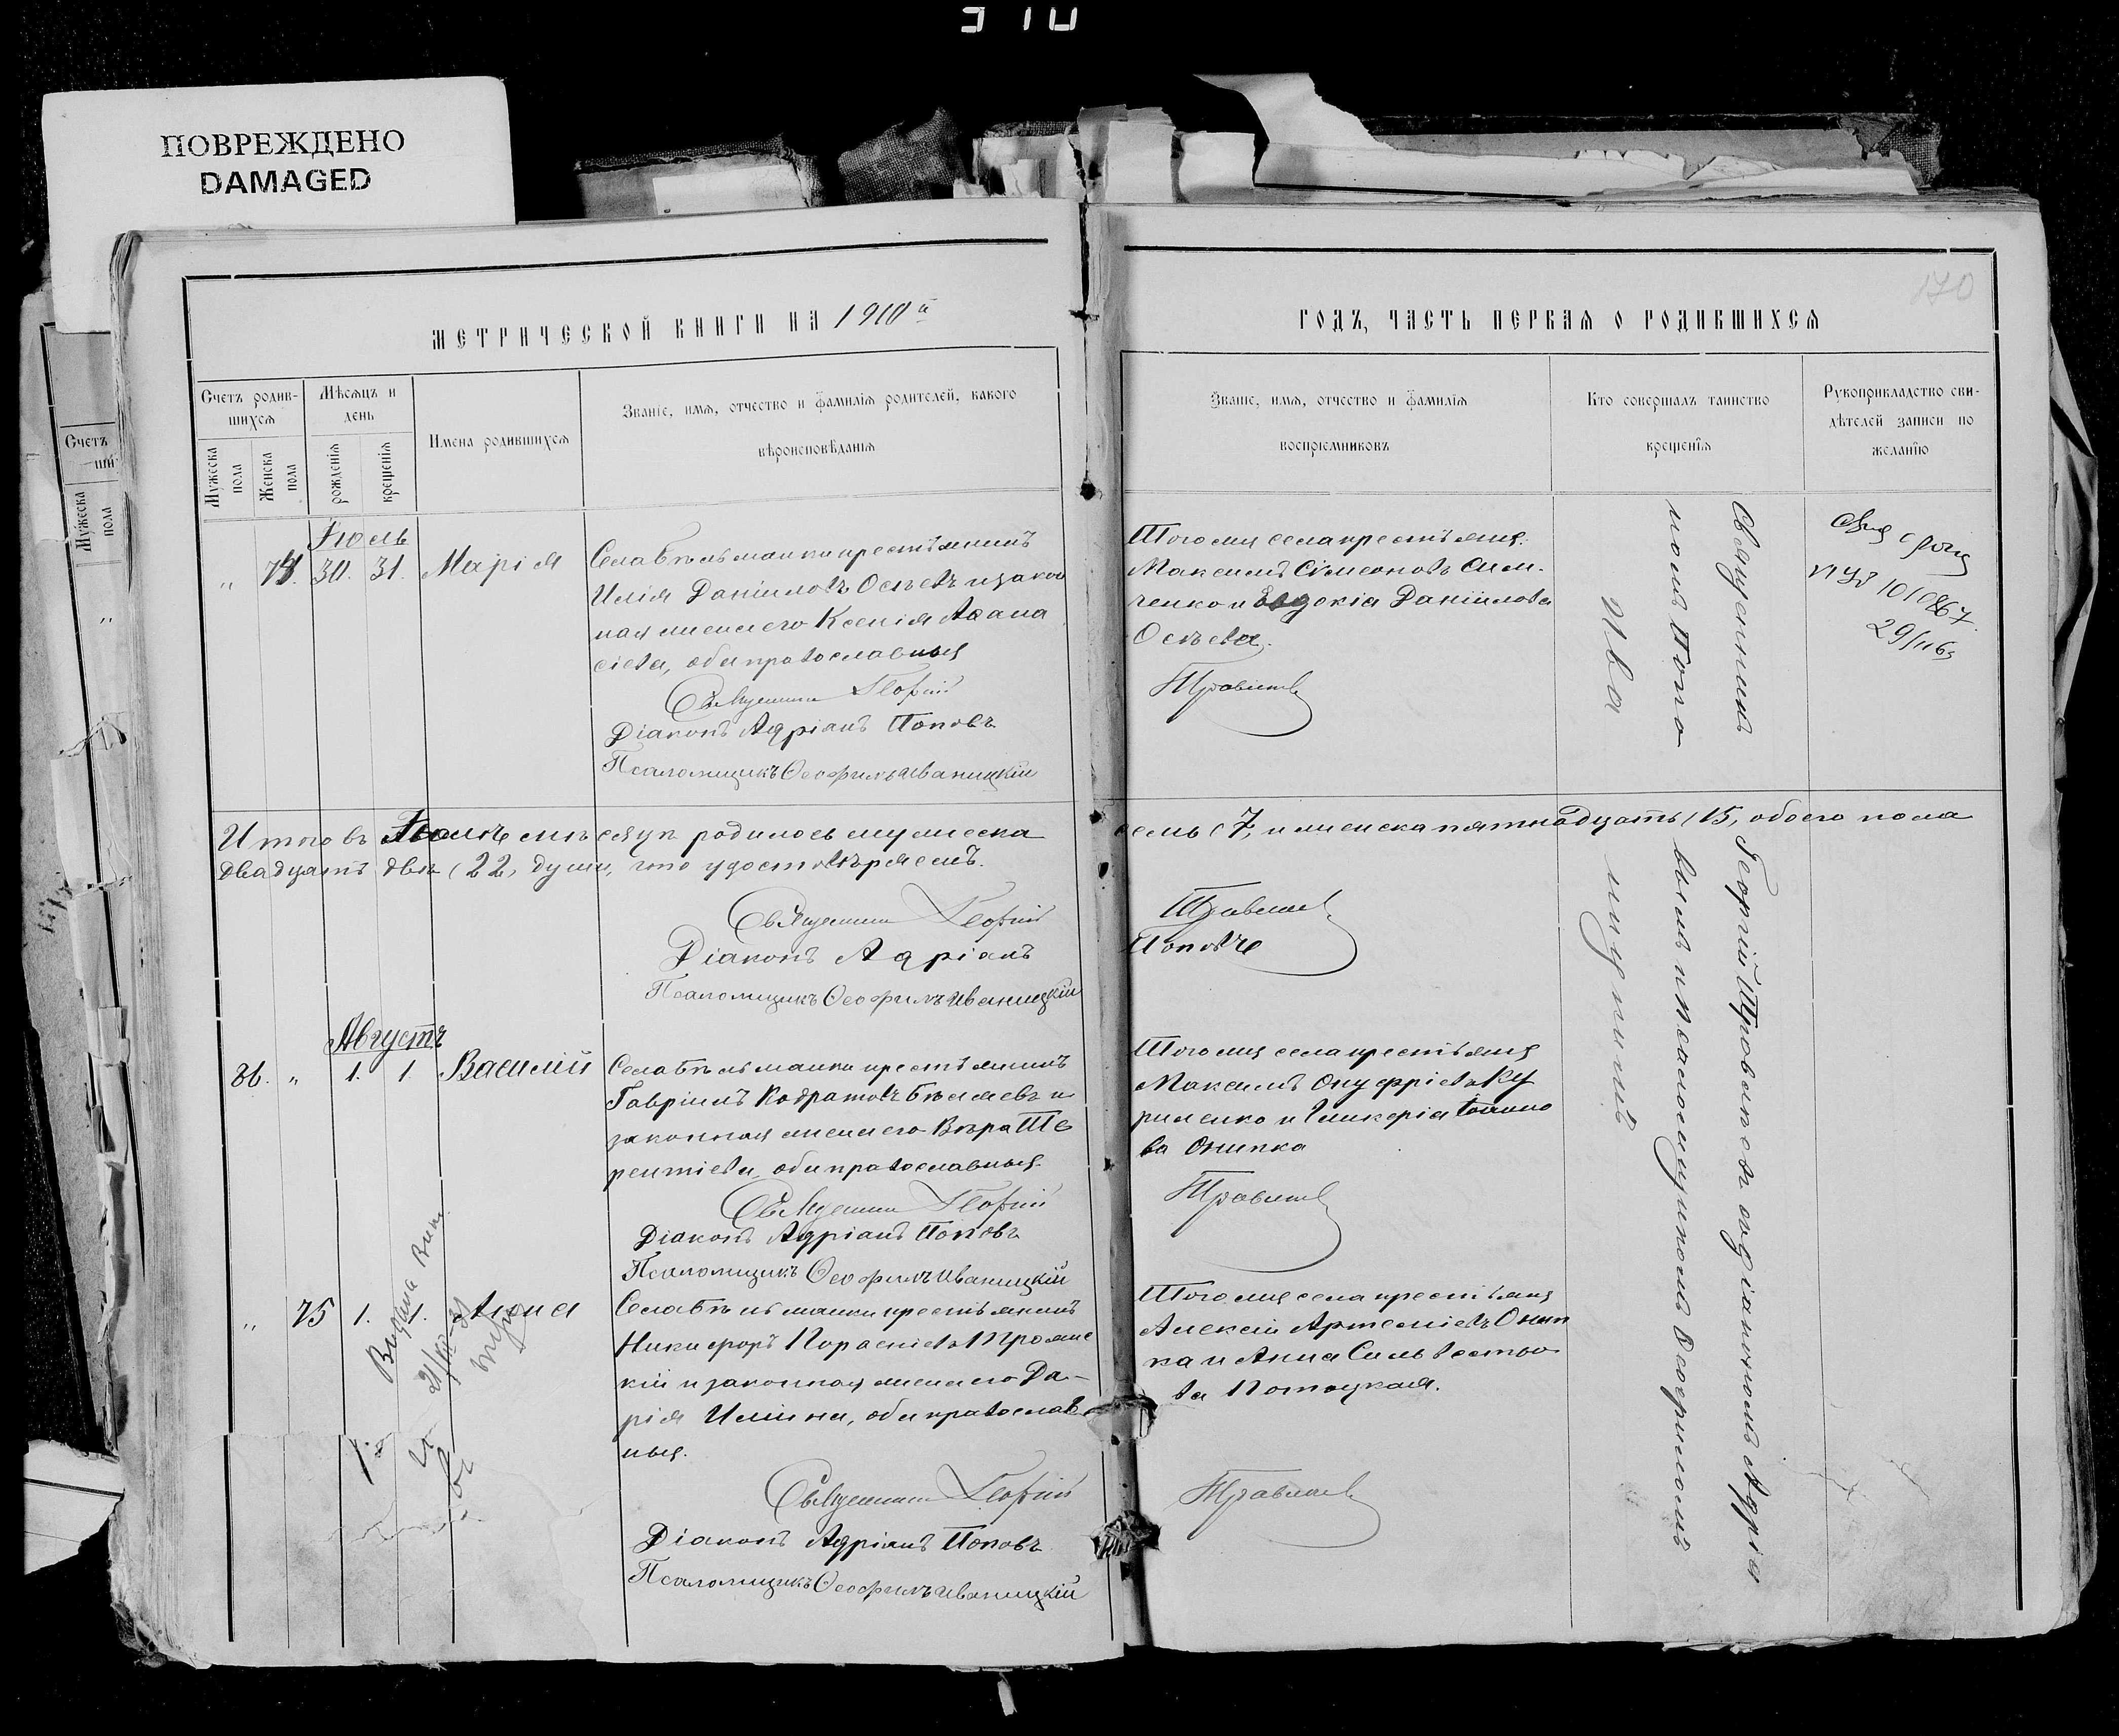 310
ПОВРЕЖДЕНО
DAMAGED
170
МЕТРИЧЕСКОЙ КНИГИ НА 1910й
ГОДЪ, ЧАСТЬ ПЕРВАЯ О РОДИВШИХСЯ
Счетъ родив-
шихся
Мужеска пола
Женска пола
Мѣсяцъ и
день
рожденія
крещенія
Имена родившихся
Званіе, имя, отчество и фамилія родителей, какого
вѣроисповѣданія
Званіе, имя, отчество и фамилія
воспріемниковъ
Кто совершалъ таинство
крещенія
Рукоприкладство сви-
дѣтелей записи по
желанію
Счетъ
Мужеска
пола
Іюль
„ 74. 30. 31. Марія
Села Бѣльманки крестьянинъ
Илія Даніиловъ Осѣевъ и закон
ная жена его Ксенія Афана
сіева, оба православныя
Священникъ Георгій
Діаконъ Адріанъ Поповъ
Псаломщикъ Ѳеофилъ Иваницкій
Того же села крестьяне
Максимъ Симеоновъ Сим-
ченко и Евдокія Даніилова
Осѣева.
Травлевъ
Священникъ
1010867
Итого въ Іюлѣ мѣсяцѣ родилось мужеска семь (7, и женска пятнадцать (15, обоего пола
двадцать двѣ (22, души, что удостовѣряемъ.
Священникъ Георгій
Діаконъ Адріанъ Поповъ
Псаломщикъ Ѳеофилъ Иваницкій
Августъ
86. „ 1. 1. Василій
Села Бѣльманки крестьянинъ
Гавріилъ Кодратовъ Бѣляевъ и
законная жена его Вѣра Те
рентіева, оба православныя.
Священникъ Георгій
Діаконъ Адріанъ Поповъ
Псаломщикъ Ѳеофилъ Иваницкій
Того же села крестьяне
Максимъ Онуфріевъ Ку
риленко и Гликерія
ва Онипка
„ 75 1. 1. Анна
Села Бѣльманки крестьянинъ
Никифоръ
кій и законная жена его Да-
рія Иліина, оба православ
ныя.
Священникъ Георгій
Діаконъ Адріанъ Поповъ
Псаломщикъ Ѳеофилъ Иваницкій
Того же села крестьяне
Алексій Артеміевъ Онип
ка и Анна Сильвестро
ва Потоцкая.
Георгій
діакономъ Адріа
номъ Попо
вымъ и псаломщикомъ Ѳеофиломъ
Ива
ницкимъ